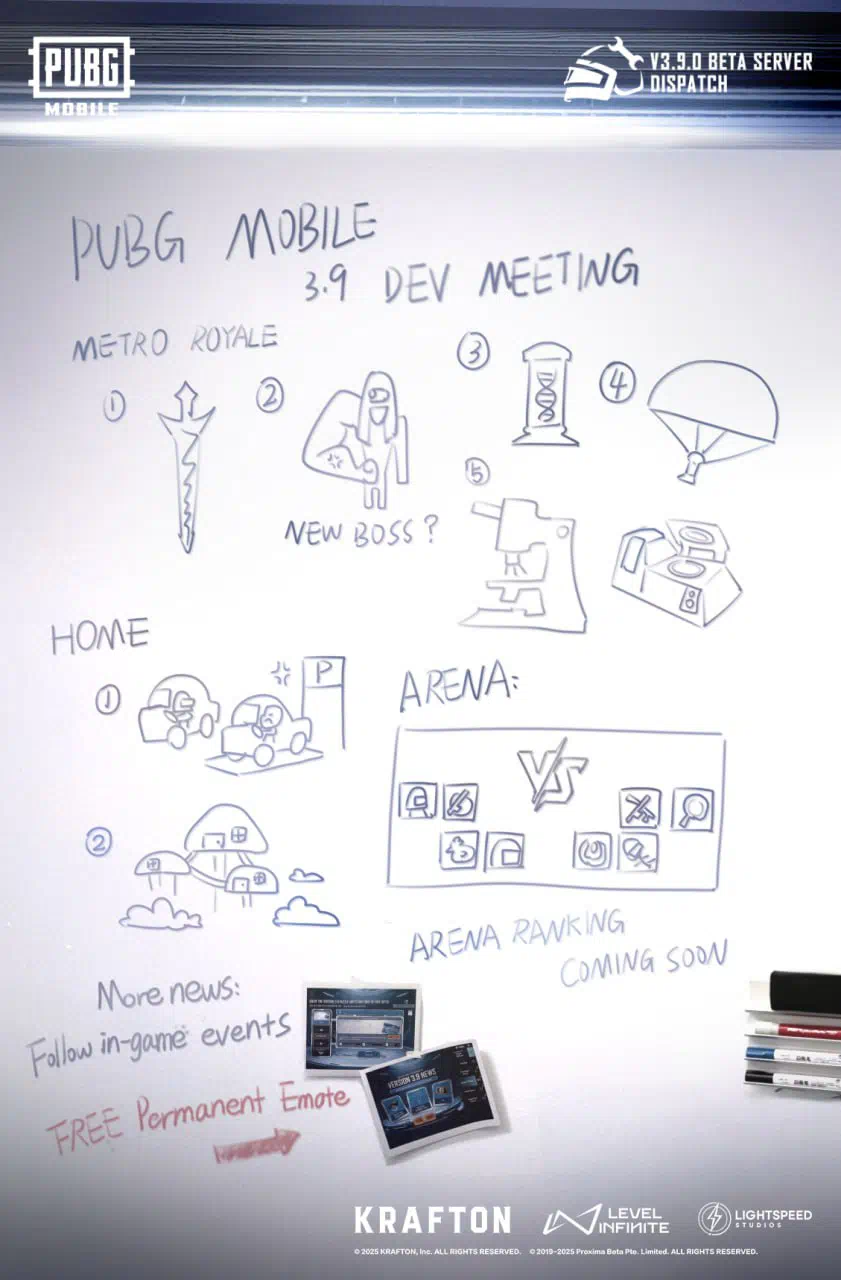 PUBG
MOBILE
V3.9.0 BETA SERVER
DISPATCH
PUBG MOBILE
3.9 DEV MEETING
METRO ROYALE
①
②
NEW BOSS?
③
④
⑤
HOME
①
P
②
ARENA:
VS
ARENA RANKING
COMING SOON
More news:
Follow in-game events
FREE Permanent Emote
VERSION 3.9 NEWS
KRAFTON
LEVEL
INFINITE
LIGHTSPEED
STUDIOS
© 2025 KRAFTON, Inc. ALL RIGHTS RESERVED. © 2019-2025 Proxima Beta Pte. Limited. ALL RIGHTS RESERVED.